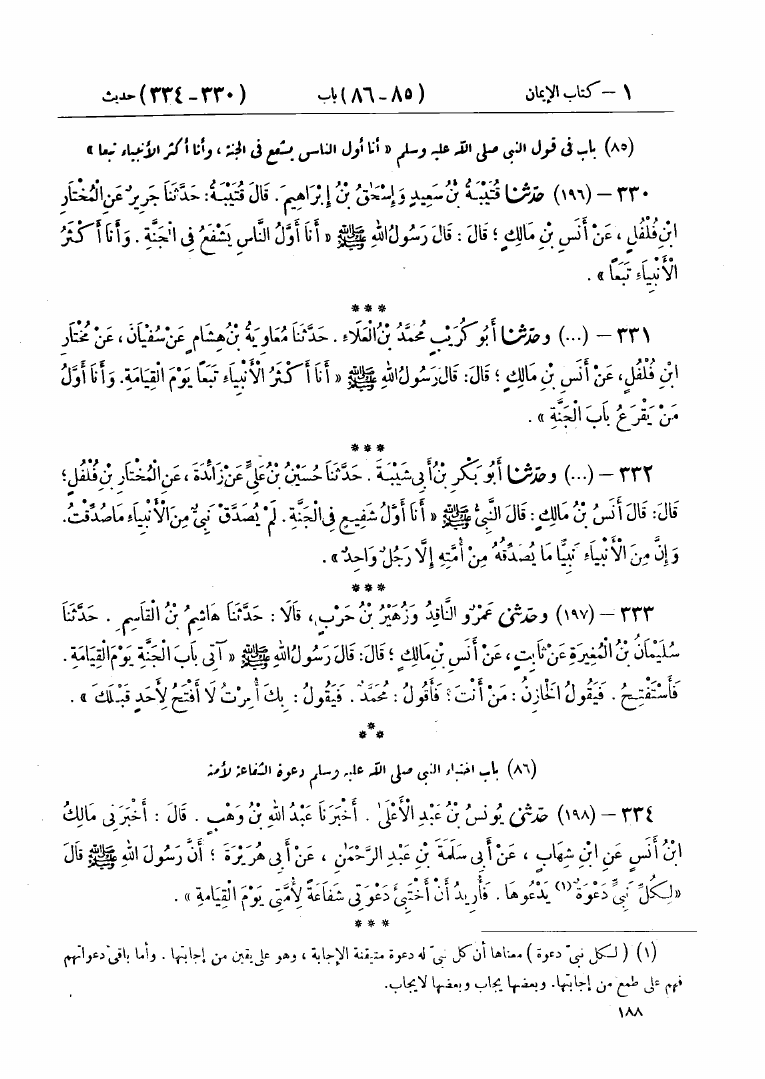 ١ – كتاب الإيمان (٨٥ – ٨٦) باب (٣٣٠ – ٣٣٤) حديث
(٨٥) باب فى قول النبى صلى الله عليه وسلم « أنا أول الناس يشفع فى الجنة ، وأنا أكثر الأنبياء تبعا »
٣٣٠ – (١٩٦) حَدَّثَنَا قُتَيْبَةُ بْنُ سَعِيدٍ وَإِسْحَٰقُ بْنُ إِبْرَاهِيمَ. قَالَ قُتَيْبَةُ: حَدَّثَنَا جَرِيرٌ عَنِ الْمُخْتَارِ
ابْنِ فُلْفُلٍ ، عَنْ أَنَسِ بْنِ مَالِكٍ ؛ قَالَ : قَالَ رَسُولُ اللهِ ﷺ « أَنَا أَوَّلُ النَّاسِ يَشْفَعُ فِى الْجَنَّةِ . وَأَنَا أَكْثَرُ
الْأَنْبِيَاءِ تَبَعًا » .
***
٣٣١ – (...) وحَدَّثَنَا أَبُو كُرَيْبٍ مُحَمَّدُ بْنُ الْعَلَاءِ . حَدَّثَنَا مُعَاوِيَةُ بْنُ هِشَامٍ عَنْ سُفْيَانَ ، عَنْ مُخْتَارِ
ابْنِ فُلْفُلٍ، عَنْ أَنَسِ بْنِ مَالِكٍ ؛ قَالَ: قَالَ رَسُولُ اللهِ ﷺ « أَنَا أَكْثَرُ الْأَنْبِيَاءِ تَبَعًا يَوْمَ الْقِيَامَةِ. وَأَنَا أَوَّلُ
مَنْ يَقْرَعُ بَابَ الْجَنَّةِ » .
***
٣٣٢ – (...) وحَدَّثَنَا أَبُو بَكْرِ بْنُ أَبِى شَيْبَةَ . حَدَّثَنَا حُسَيْنُ بْنُ عَلِىٍّ عَنْ زَائِدَةَ ، عَنِ الْمُخْتَارِ بْنِ فُلْفُلٍ؛
قَالَ: قَالَ أَنَسُ بْنُ مَالِكٍ : قَالَ النَّبِىُّ ﷺ « أَنَا أَوَّلُ شَفِيعٍ فِى الْجَنَّةِ. لَمْ يُصَدَّقْ نَبِىٌّ مِنَ الْأَنْبِيَاءِ مَا صُدِّقْتُ.
وَإِنَّ مِنَ الْأَنْبِيَاءِ نَبِيًّا مَا يُصَدِّقُهُ مِنْ أُمَّتِهِ إِلَّا رَجُلٌ وَاحِدٌ » .
***
٣٣٣ – (١٩٧) وحَدَّثَنِى عَمْرٌو النَّاقِدُ وَزُهَيْرُ بْنُ حَرْبٍ، قَالَا : حَدَّثَنَا هَاشِمُ بْنُ الْقَاسِمِ . حَدَّثَنَا
سُلَيْمَانُ بْنُ الْمُغِيرَةِ عَنْ ثَابِتٍ، عَنْ أَنَسِ بْنِ مَالِكٍ ؛ قَالَ: قَالَ رَسُولُ اللهِ ﷺ « آتِى بَابَ الْجَنَّةِ يَوْمَ الْقِيَامَةِ .
فَأَسْتَفْتِحُ . فَيَقُولُ الْخَازِنُ : مَنْ أَنْتَ؟ فَأَقُولُ : مُحَمَّدٌ . فَيَقُولُ : بِكَ أُمِرْتُ لَا أَفْتَحُ لِأَحَدٍ قَبْلَكَ » .
***
(٨٦) باب اختباء النبى صلى الله عليه وسلم دعوة الشفاعة لأمته
٣٣٤ – (١٩٨) حَدَّثَنِى يُونُسُ بْنُ عَبْدِ الْأَعْلَىٰ . أَخْبَرَنَا عَبْدُ اللهِ بْنُ وَهْبٍ . قَالَ : أَخْبَرَنِى مَالِكُ
ابْنُ أَنَسٍ عَنِ ابْنِ شِهَابٍ ، عَنْ أَبِى سَلَمَةَ بْنِ عَبْدِ الرَّحْمَٰنِ ، عَنْ أَبِى هُرَيْرَةَ ؛ أَنَّ رَسُولَ اللهِ ﷺ قَالَ
« لِكُلِّ نَبِىٍّ دَعْوَةٌ (١) يَدْعُوهَا . فَأُرِيدُ أَنْ أَخْتَبِئَ دَعْوَتِى شَفَاعَةً لِأُمَّتِى يَوْمَ الْقِيَامَةِ » .
***
(١) ( لكل نبىّ دعوة ) معناها أن كل نبىّ له دعوة متيقنة الإجابة ، وهو على يقين من إجابتها . وأما باقى دعواتهم
فهم على طمع من إجابتها. وبعضها يجاب وبعضها لايجاب.
١٨٨